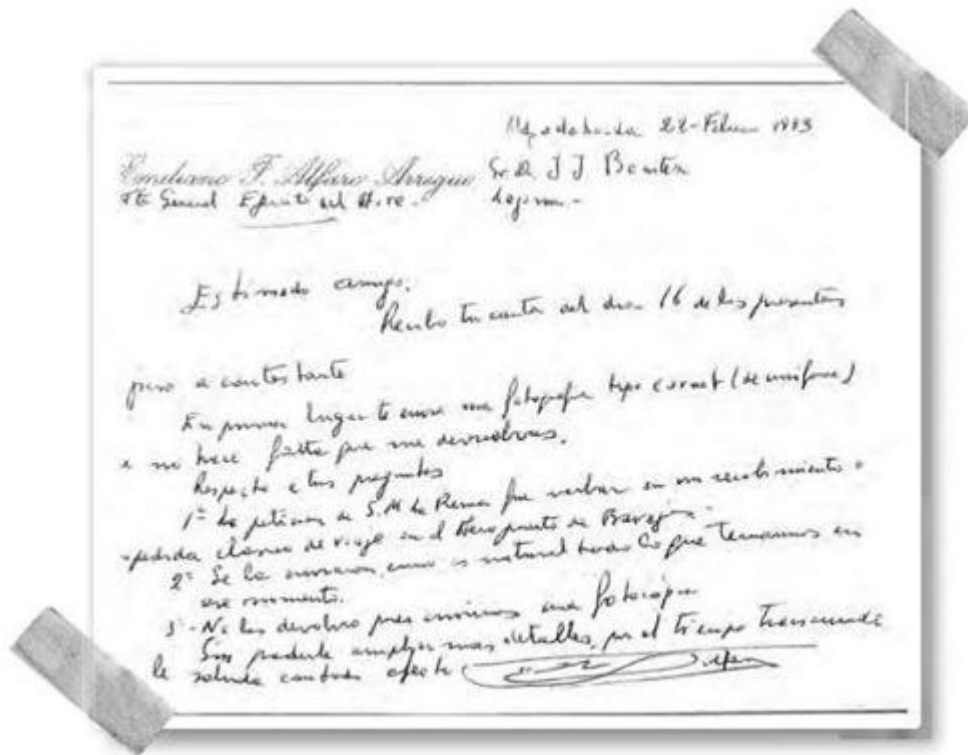 22-Febrero 1983
Emiliano F. Alfaro Arregui Sr. D. J J Benitez
Tte General Ejército del Aire.
Estimado amigo:
Recibo tu carta del dia 16 de los presentes
paso a contestarte
En primer lugar te envio una fotografia tipo carnet (de uniforme)
e no hace falta que me devuelvas.
Respecto a tus preguntas
1º La peticion de S.M. la Reina fue verbal en un recibimiento o
despedida clasica de viaje en el Aeropuerto de Barajas.
2º Se la enviaron, como es natural todo lo que teniamos en
ese momento.
3º - No las devolvio pues enviamos una fotocopia
Sin poderte ampliar mas detalles, por el tiempo transcurrido
le saluda con todo afecto